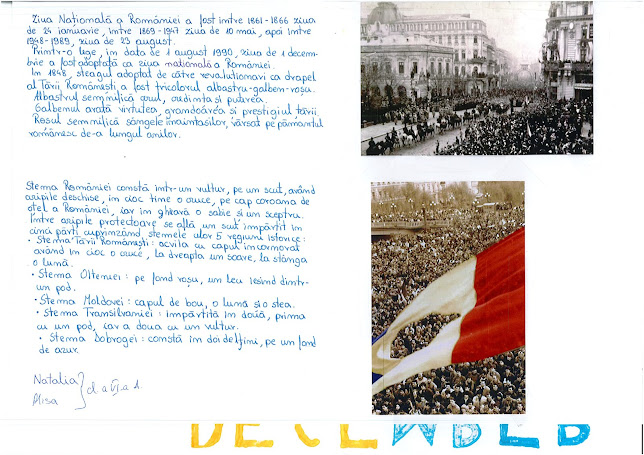 Ziua Națională a României a fost între 1861-1866 ziua
de 24 ianuarie, între 1869-1947 ziua de 10 mai, apoi între
1948-1989, ziua de 23 august.
Printr-o lege, în data de 1 august 1990, ziua de 1 decem-
brie a fost adoptată ca ziua națională a României.
În 1848, steagul adoptat de către revoluționari ca drapel
al Țării Românești a fost tricolorul albastru-galben-roșu.
Albastrul semnifică cerul, credința și puterea.
Galbenul arată virtutea, grandoarea și prestigiul țării.
Roșul semnifică sângele înaintașilor, vărsat pe pământul
românesc de-a lungul anilor.
Stema României constă într-un vultur, pe un scut, având
aripile deschise, în cioc ține o cruce, pe cap coroana de
oțel a României, iar în gheară o sabie și un sceptru.
Între aripile protectoare se află un scut împărțit în
cinci părți cuprinzând stemele celor 5 regiuni istorice:
• Stema Țării Românești: acvila cu capul încoronat
având în cioc o cruce, la dreapta un soare, la stânga
o lună.
• Stema Olteniei: pe fond roșu, un leu ieșind dintr-
un pod.
• Stema Moldovei: capul de bou, o lună și o stea.
• Stema Transilvaniei: împărțită în două, prima
cu un pod, iar a doua cu un vultur.
• Stema Dobrogei: constă în doi delfini, pe un fond
de azur.
Natalia
Alisa
cl. a VI-a 1.
DECEMBER